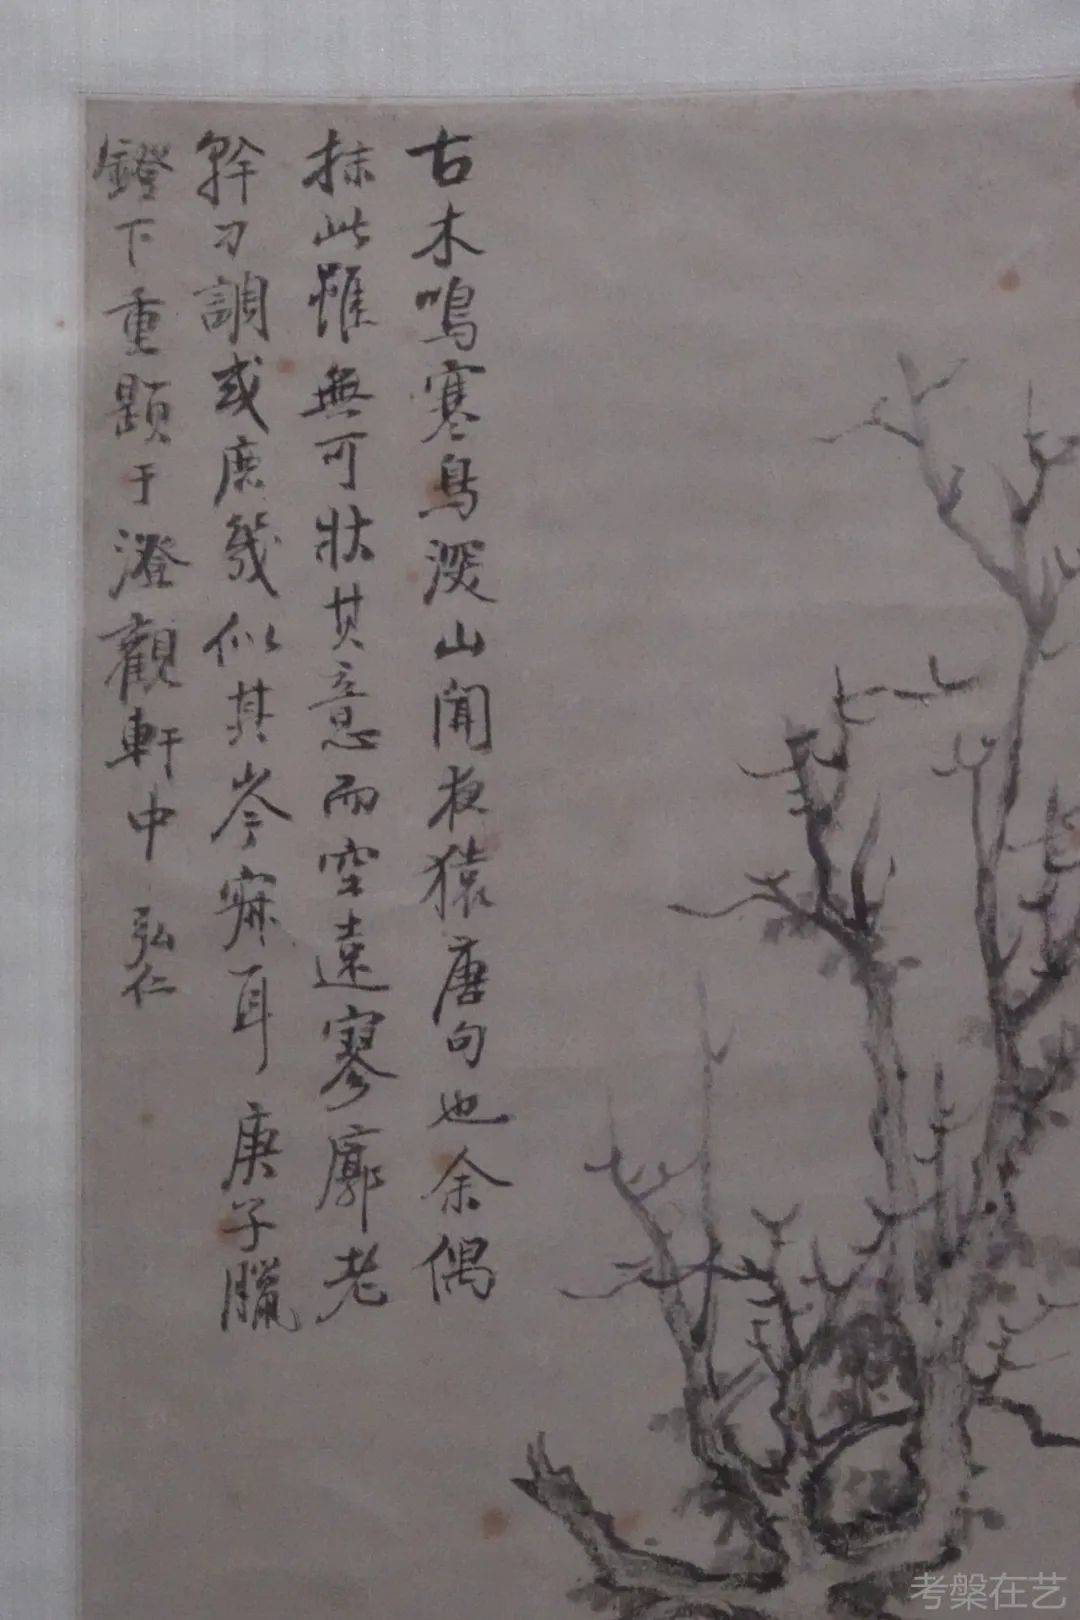 古木鳴寒鳥深山聞夜猿唐句也余偶
抹此雖無可狀其意而空遠寥廓老
幹刁調或庶幾似其岑寂耳 庚子臘
鐙下重題于澄觀軒中 弘仁
考槃在艺